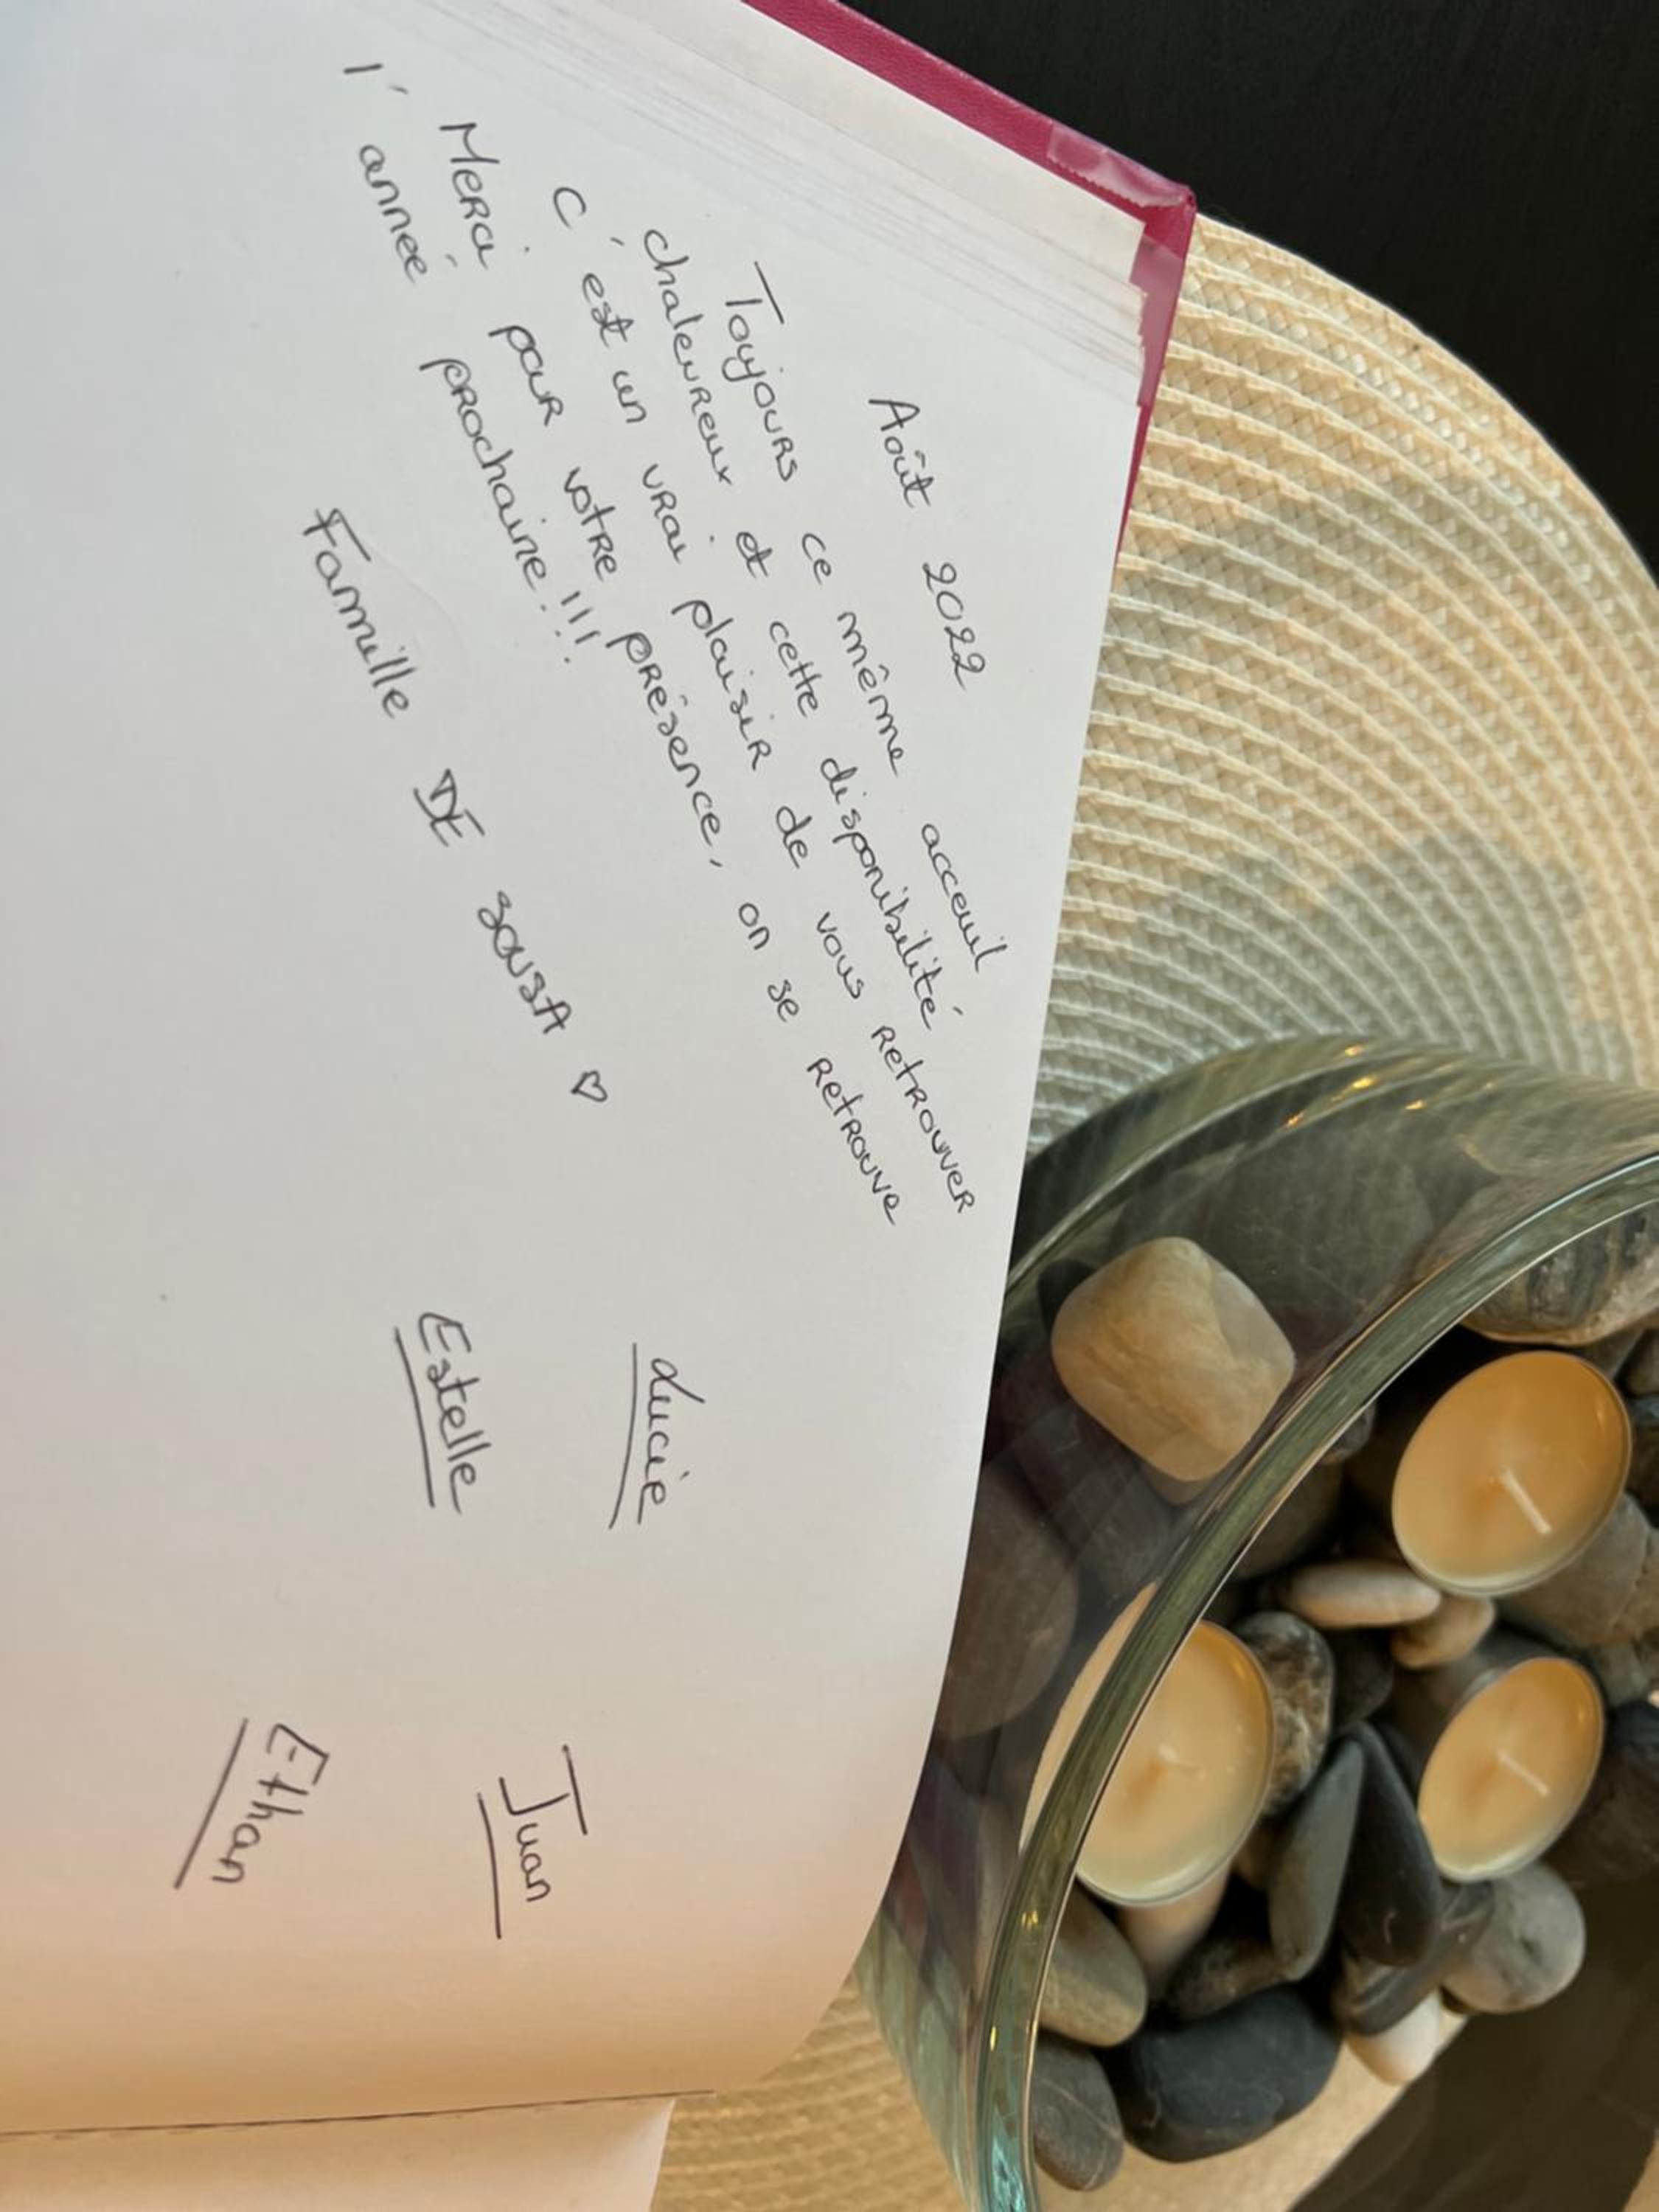 Août 2022
Toujours ce même acceuil
chaleureux et cette disponibilité
C'est un vrai plaisir de vous retrouver
Merci pour votre présence, on se retrouve
l'année prochaine!!!
Famille DE SOUSA ♡
Lucie
Estelle
Juan
Ethan